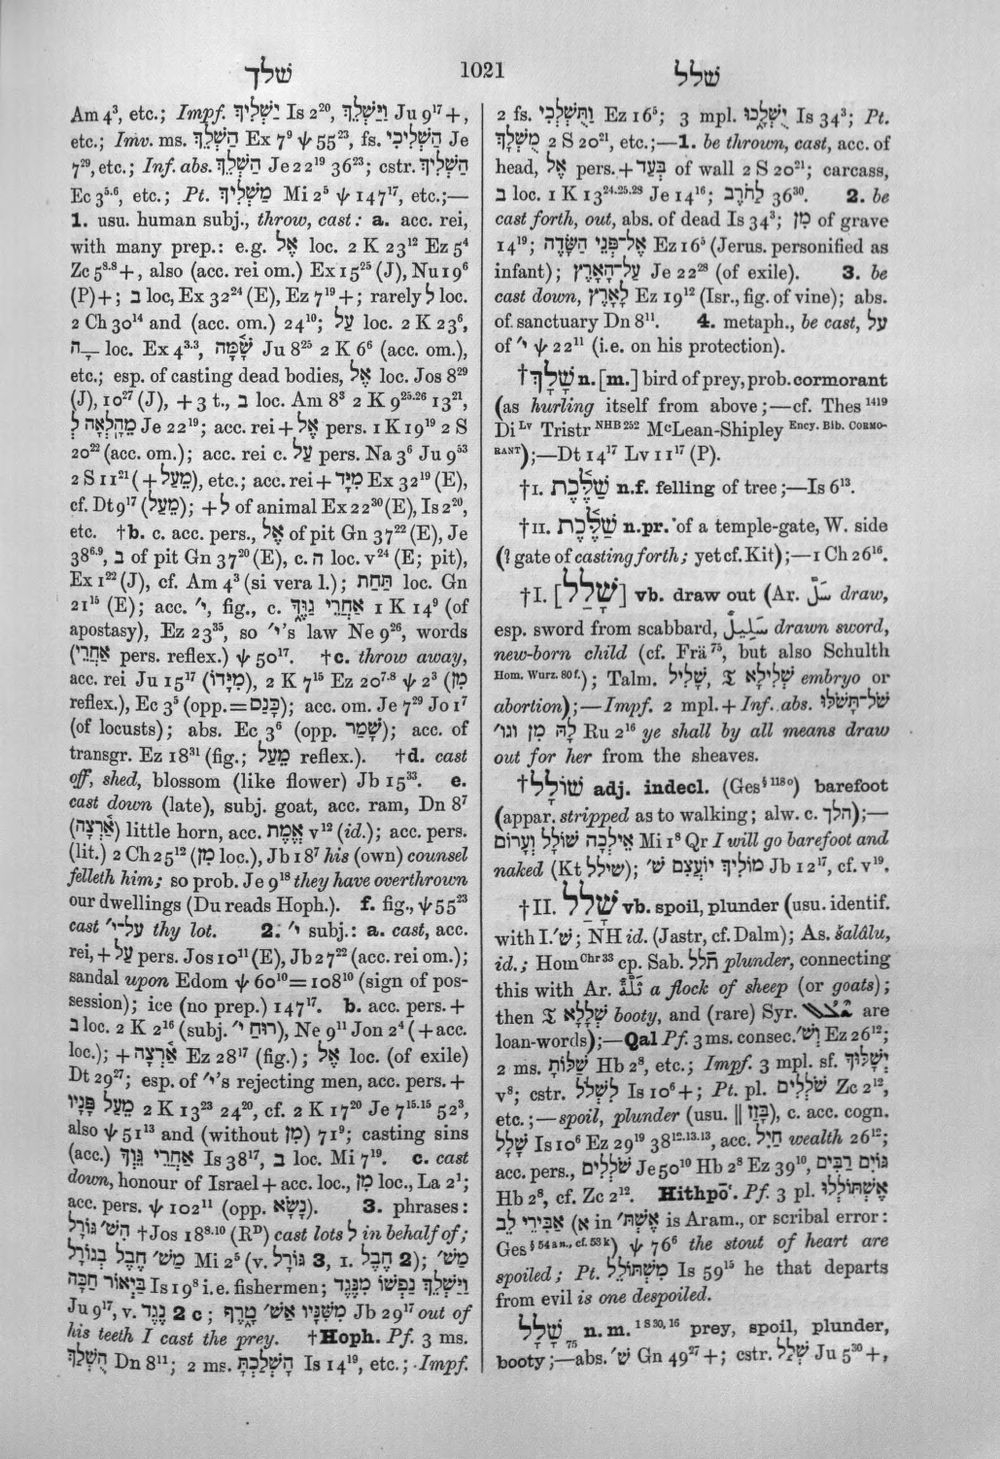 שלך
1021
שלל
Am 4³, etc.; Impf. יַשְׁלִיךְ Is 2²⁰, וַיַּשְׁלֵךְ Ju 9¹⁷ +,
etc.; Imv. ms. הַשְׁלֵךְ Ex 7⁹ ψ 55²³, fs. הַשְׁלִיכִי Je
7²⁹, etc.; Inf. abs. הַשְׁלֵךְ Je 22¹⁹ 36²³; cstr. הַשְׁלִיךְ
Ec 3⁵·⁶, etc.; Pt. מַשְׁלִיךְ Mi 2⁵ ψ 147¹⁷, etc.;—
1. usu. human subj., throw, cast: a. acc. rei,
with many prep.: e.g. אֶל loc. 2 K 23¹² Ez 5⁴
Zc 5⁸·⁸ +, also (acc. rei om.) Ex 15²⁵ (J), Nu 19⁶
(P) +; בְּ loc, Ex 32²⁴ (E), Ez 7¹⁹ +; rarely לְ loc.
2 Ch 30¹⁴ and (acc. om.) 24¹⁰; עַל loc. 2 K 23⁶,
ה— loc. Ex 4³·³, שָׁמָּה Ju 8²⁵ 2 K 6⁶ (acc. om.),
etc.; esp. of casting dead bodies, אֶל loc. Jos 8²⁹
(J), 10²⁷ (J), + 3 t., בְּ loc. Am 8³ 2 K 9²⁵·²⁶ 13²¹,
מֵהָלְאָה לְ Je 22¹⁹; acc. rei + אֶל pers. 1 K 19¹⁹ 2 S
20²² (acc. om.); acc. rei c. עַל pers. Na 3⁶ Ju 9⁵³
2 S 11²¹ (+ מֵעַל), etc.; acc. rei + מִיַּד Ex 32¹⁹ (E),
cf. Dt 9¹⁷ (מֵעַל); + לְ of animal Ex 22³⁰ (E), Is 2²⁰,
etc. †b. c. acc. pers., אֶל of pit Gn 37²² (E), Je
38⁶·⁹, בְּ of pit Gn 37²⁰ (E), c. ה loc. v²⁴ (E; pit),
Ex 1²² (J), cf. Am 4³ (si vera l.); תַּחַת loc. Gn
21¹⁵ (E); acc. י׳, fig., c. אַחֲרֵי גַוֶּךָ 1 K 14⁹ (of
apostasy), Ez 23³⁵, so י׳'s law Ne 9²⁶, words
(אַחֲרֵי pers. reflex.) ψ 50¹⁷. †c. throw away,
acc. rei Ju 15¹⁷ (מִיָּדוֹ), 2 K 7¹⁵ Ez 20⁷·⁸ ψ 2³ (מִן
reflex.), Ec 3⁵ (opp. = כָּנַס); acc. om. Je 7²⁹ Jo 1⁷
(of locusts); abs. Ec 3⁶ (opp. שָׁמַר); acc. of
transgr. Ez 18³¹ (fig.; מֵעַל reflex.). †d. cast
off, shed, blossom (like flower) Jb 15³³. e.
cast down (late), subj. goat, acc. ram, Dn 8⁷
(אַ֫רְצָה) little horn, acc. אֱמֶת v¹² (id.); acc. pers.
(lit.) 2 Ch 25¹² (מִן loc.), Jb 18⁷ his (own) counsel
felleth him; so prob. Je 9¹⁸ they have overthrown
our dwellings (Du reads Hoph.). f. fig., ψ 55²³
cast עַל־י׳ thy lot. 2. י׳ subj.: a. cast, acc.
rei, + עַל pers. Jos 10¹¹ (E), Jb 27²² (acc. rei om.);
sandal upon Edom ψ 60¹⁰ = 108¹⁰ (sign of pos-
session); ice (no prep.) 147¹⁷. b. acc. pers. +
בְּ loc. 2 K 2¹⁶ (subj. רוּחַ י׳), Ne 9¹¹ Jon 2⁴ (+ acc.
loc.); + אַ֫רְצָה Ez 28¹⁷ (fig.); אֶל loc. (of exile)
Dt 29²⁷; esp. of י׳'s rejecting men, acc. pers. +
מֵעַל פָּנָיו 2 K 13²³ 24²⁰, cf. 2 K 17²⁰ Je 7¹⁵·¹⁵ 52³,
also ψ 51¹³ and (without מִן) 71⁹; casting sins
(acc.) אַחֲרֵי גֵוְךָ Is 38¹⁷, בְּ loc. Mi 7¹⁹. c. cast
down, honour of Israel + acc. loc., מִן loc., La 2¹;
acc. pers. ψ 102¹¹ (opp. נָשָׂא). 3. phrases:
הִשׁ׳ גּוֹרָל †Jos 18⁸·¹⁰ (Rᴰ) cast lots לְ in behalf of;
מַשׁ׳ חֶבֶל בְּגוֹרָל Mi 2⁵ (v. גּוֹרָל 3, 1. חֶבֶל 2); מַשׁ׳
בַּיְאוֹר חַכָּה Is 19⁸ i.e. fishermen; וַיַּשְׁלֵךְ נַפְשׁוֹ מִנֶּגֶד
Ju 9¹⁷, v. נֶגֶד 2 c; מִשִּׁנָּיו אַשׁ׳ טָרֶף Jb 29¹⁷ out of
his teeth I cast the prey. †Hoph. Pf. 3 ms.
הֻשְׁלַךְ Dn 8¹¹; 2 ms. הָשְׁלַכְתָּ Is 14¹⁹, etc.; Impf.
2 fs. וַתֻּשְׁלְכִי Ez 16⁵; 3 mpl. יֻשְׁלָ֑כוּ Is 34³; Pt.
מֻשְׁלָךְ 2 S 20²¹, etc.;—1. be thrown, cast, acc. of
head, אֶל pers. + בְּעַד of wall 2 S 20²¹; carcass,
בְּ loc. 1 K 13²⁴·²⁵·²⁸ Je 14¹⁶; לַחֹרֶב 36³⁰. 2. be
cast forth, out, abs. of dead Is 34³; מִן of grave
14¹⁹; אֶל־פְּנֵי הַשָּׂדֶה Ez 16⁵ (Jerus. personified as
infant); עַל־הָאָרֶץ Je 22²⁸ (of exile). 3. be
cast down, לָאָרֶץ Ez 19¹² (Isr., fig. of vine); abs.
of sanctuary Dn 8¹¹. 4. metaph., be cast, עַל
of י׳ ψ 22¹¹ (i.e. on his protection).
†שָׁלָךְ n.[m.] bird of prey, prob. cormorant
(as hurling itself from above;—cf. Thes ¹⁴¹⁹
Di ᴸᵛ Tristr ᴺᴴᴮ ²⁵² McLean-Shipley Ency. Bib. Cormo-
rant);—Dt 14¹⁷ Lv 11¹⁷ (P).
†I. שַׁלֶּ֫כֶת n.f. felling of tree;—Is 6¹³.
†II. שַׁלֶּ֫כֶת n.pr. of a temple-gate, W. side
(? gate of casting forth; yet cf. Kit);—1 Ch 26¹⁶.
†I. [שָׁלַל] vb. draw out (Ar. سَلَّ draw,
esp. sword from scabbard, سَلِيلٌ drawn sword,
new-born child (cf. Frä ⁷⁵, but also Schulth
Hom. Wurz. 80 f.); Talm. שָׁלִיל, 𝔗 שְׁלִילָא embryo or
abortion);—Impf. 2 mpl. + Inf. abs. שֹׁל־תָּשֹׁלּוּ
לָהּ מִן וגו׳ Ru 2¹⁶ ye shall by all means draw
out for her from the sheaves.
†שׁוֹלָל adj. indecl. (Ges § 118 o) barefoot
(appar. stripped as to walking; alw. c. הלך);—
אֵילְכָה שׁוֹלָל וְעָרוֹם Mi 1⁸ Qr I will go barefoot and
naked (Kt שילל); מוֹלִיךְ יוֹעֲצִים שׁ׳ Jb 12¹⁷, cf. v¹⁹.
†II. שָׁלַל vb. spoil, plunder (usu. identif.
with I. שׁ׳; NH id. (Jastr, cf. Dalm); As. šalâlu,
id.; Hom Chr 33 cp. Sab. תֹלל plunder, connecting
this with Ar. ثَلَّة a flock of sheep (or goats);
then 𝔗 שְׁלָלָא booty, and (rare) Syr. are
loan-words);—Qal Pf. 3 ms. consec. וְשׁ׳ Ez 26¹²;
2 ms. שַׁלּוֹתָ Hb 2⁸, etc.; Impf. 3 mpl. sf. יְשָׁלּוּךָ
v⁸; cstr. לִשְׁלֹל Is 10⁶ +; Pt. pl. שֹׁלְלִים Zc 2¹²,
etc.;—spoil, plunder (usu. ‖ בָּזַז), c. acc. cogn.
שָׁלָל Is 10⁶ Ez 29¹⁹ 38¹²·¹³·¹³, acc. חַיִל wealth 26¹²;
acc. pers., שֹׁלְלִים Je 50¹⁰ Hb 2⁸ Ez 39¹⁰, גּוֹיִם רַבִּים
Hb 2⁸, cf. Zc 2¹². Hithpō. Pf. 3 pl. אֶשְׁתּוֹלְלוּ
אַבִּירֵי לֵב (א in אֶשְׁתּ׳ is Aram., or scribal error:
Ges § 54 a n., cf. 53 k) ψ 76⁶ the stout of heart are
spoiled; Pt. מִשְׁתּוֹלֵל Is 59¹⁵ he that departs
from evil is one despoiled.
שָׁלָל ₇₅ n.m. 1 S 30, 16 prey, spoil, plunder,
booty;—abs. שׁ׳ Gn 49²⁷ +; cstr. שְׁלַל Ju 5³⁰ +,